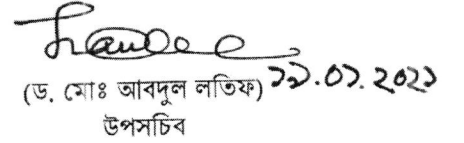 (ড. মোঃ আবদুল লতিফ) ১১.০১.২০২১
উপসচিব